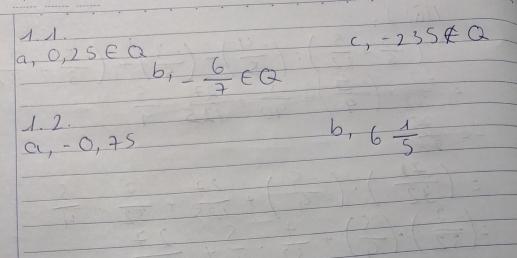 1.1.
a, 0,25 ∈ Q
b, - 6/7 ∈ Q
c, -235 ∉ Q
1.2.
a, -0,75
b, 6 1/5